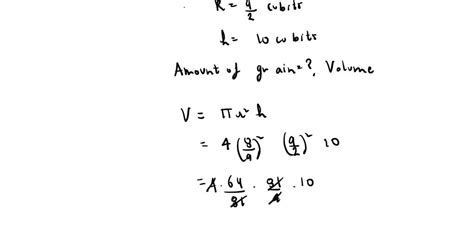 R = 9/2 cubits
h = 10 cubits
Amount of grain = ?, Volume
V = πr²h
= 4 (8/9)² (9/2)² 10
= 4 · 64/81 · 81/4 · 10